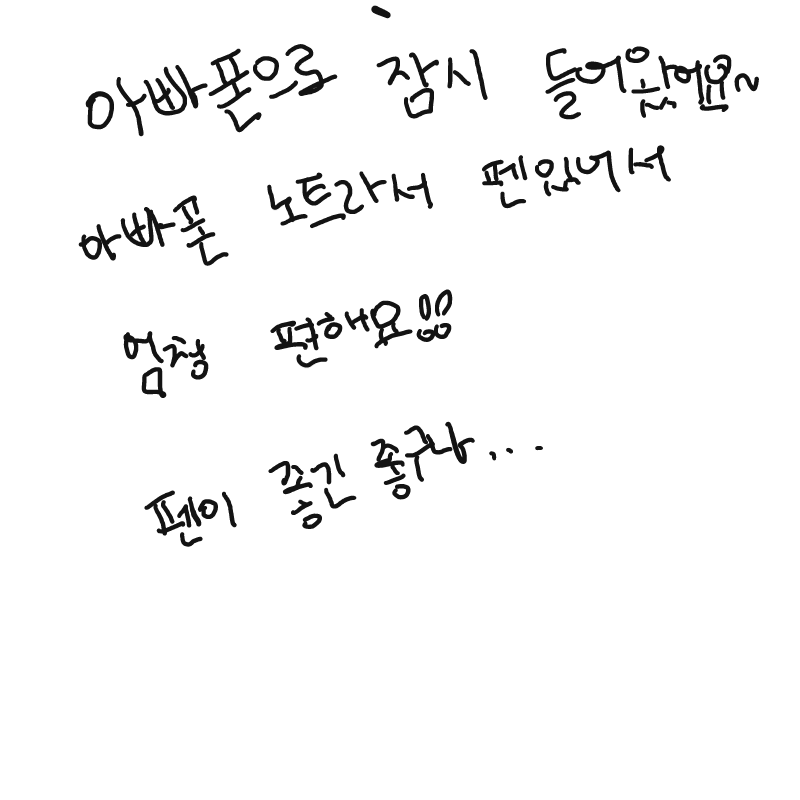 아빠폰으로 잠시 들어왔에요~
아빠폰 노트라서 펜있어서
엄청 편해요!!
펜이 좋긴 좋구나...